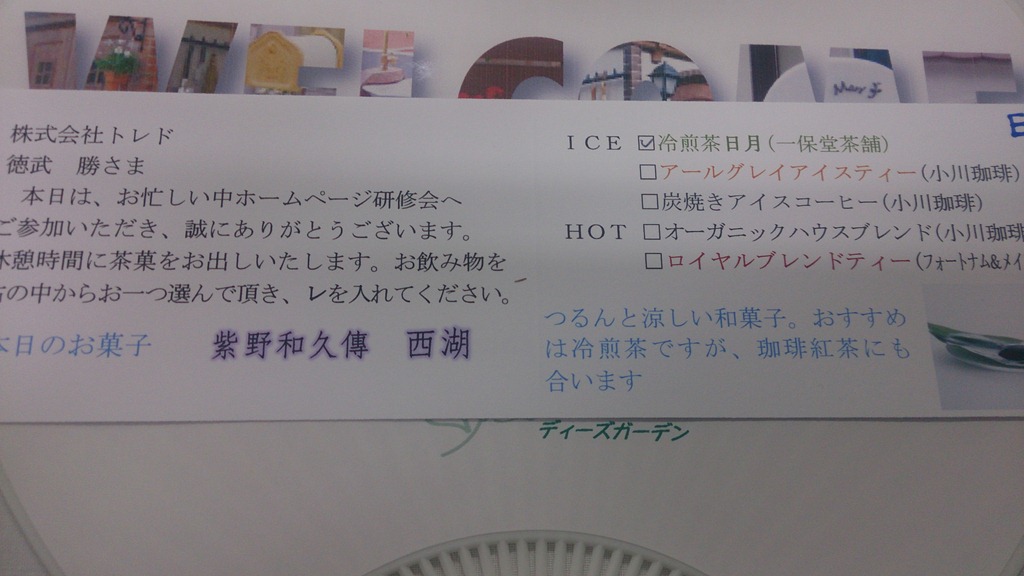 WELCOME
株式会社トレド
徳武　勝さま
本日は、お忙しい中ホームページ研修会へ
ご参加いただき、誠にありがとうございます。
休憩時間に茶菓をお出しいたします。お飲み物を
右の中からお一つ選んで頂き、レを入れてください。
本日のお菓子　紫野和久傳　西湖
ICE ☑冷煎茶日月(一保堂茶舗)
□アールグレイアイスティー(小川珈琲)
□炭焼きアイスコーヒー(小川珈琲)
HOT □オーガニックハウスブレンド(小川珈琲
□ロイヤルブレンドティー(フォートナム&メイ
つるんと涼しい和菓子。おすすめ
は冷煎茶ですが、珈琲紅茶にも
合います
ディーズガーデン